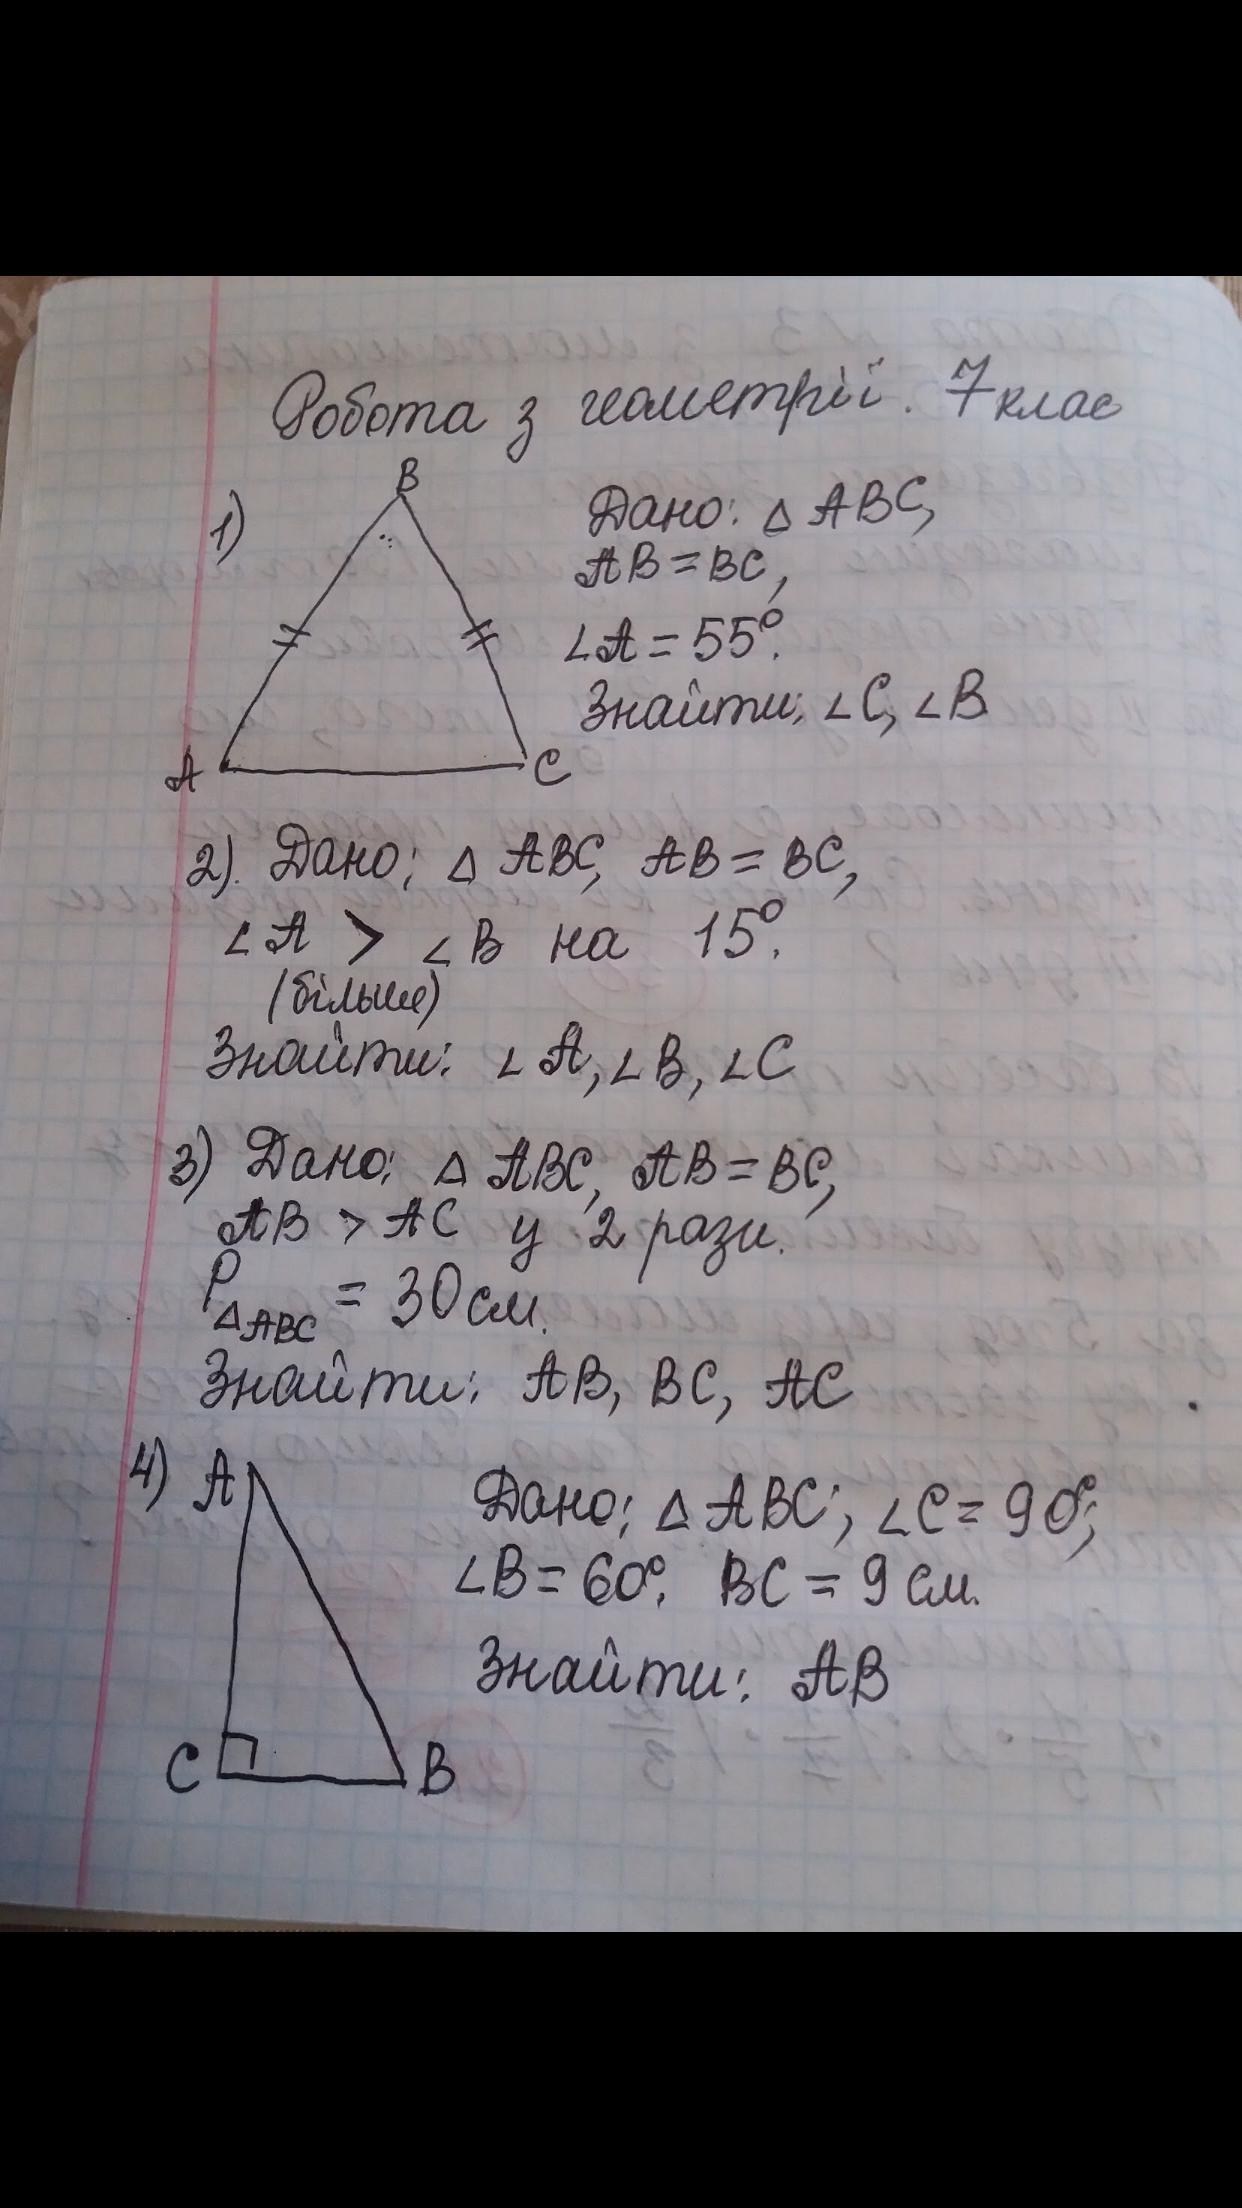 Робота з геометрії. 7 клас
1)
B
A
C
Дано: △ ABC,
AB = BC,
∠A = 55°.
Знайти: ∠C, ∠B
2). Дано: △ ABC, AB = BC,
∠A > ∠B на 15°.
(більше)
Знайти: ∠A, ∠B, ∠C
3) Дано: △ ABC, AB = BC,
AB > AC у 2 рази.
P△ABC = 30 см.
Знайти: AB, BC, AC
4)
A
C
B
Дано: △ ABC; ∠C = 90°;
∠B = 60°. BC = 9 см.
Знайти: AB